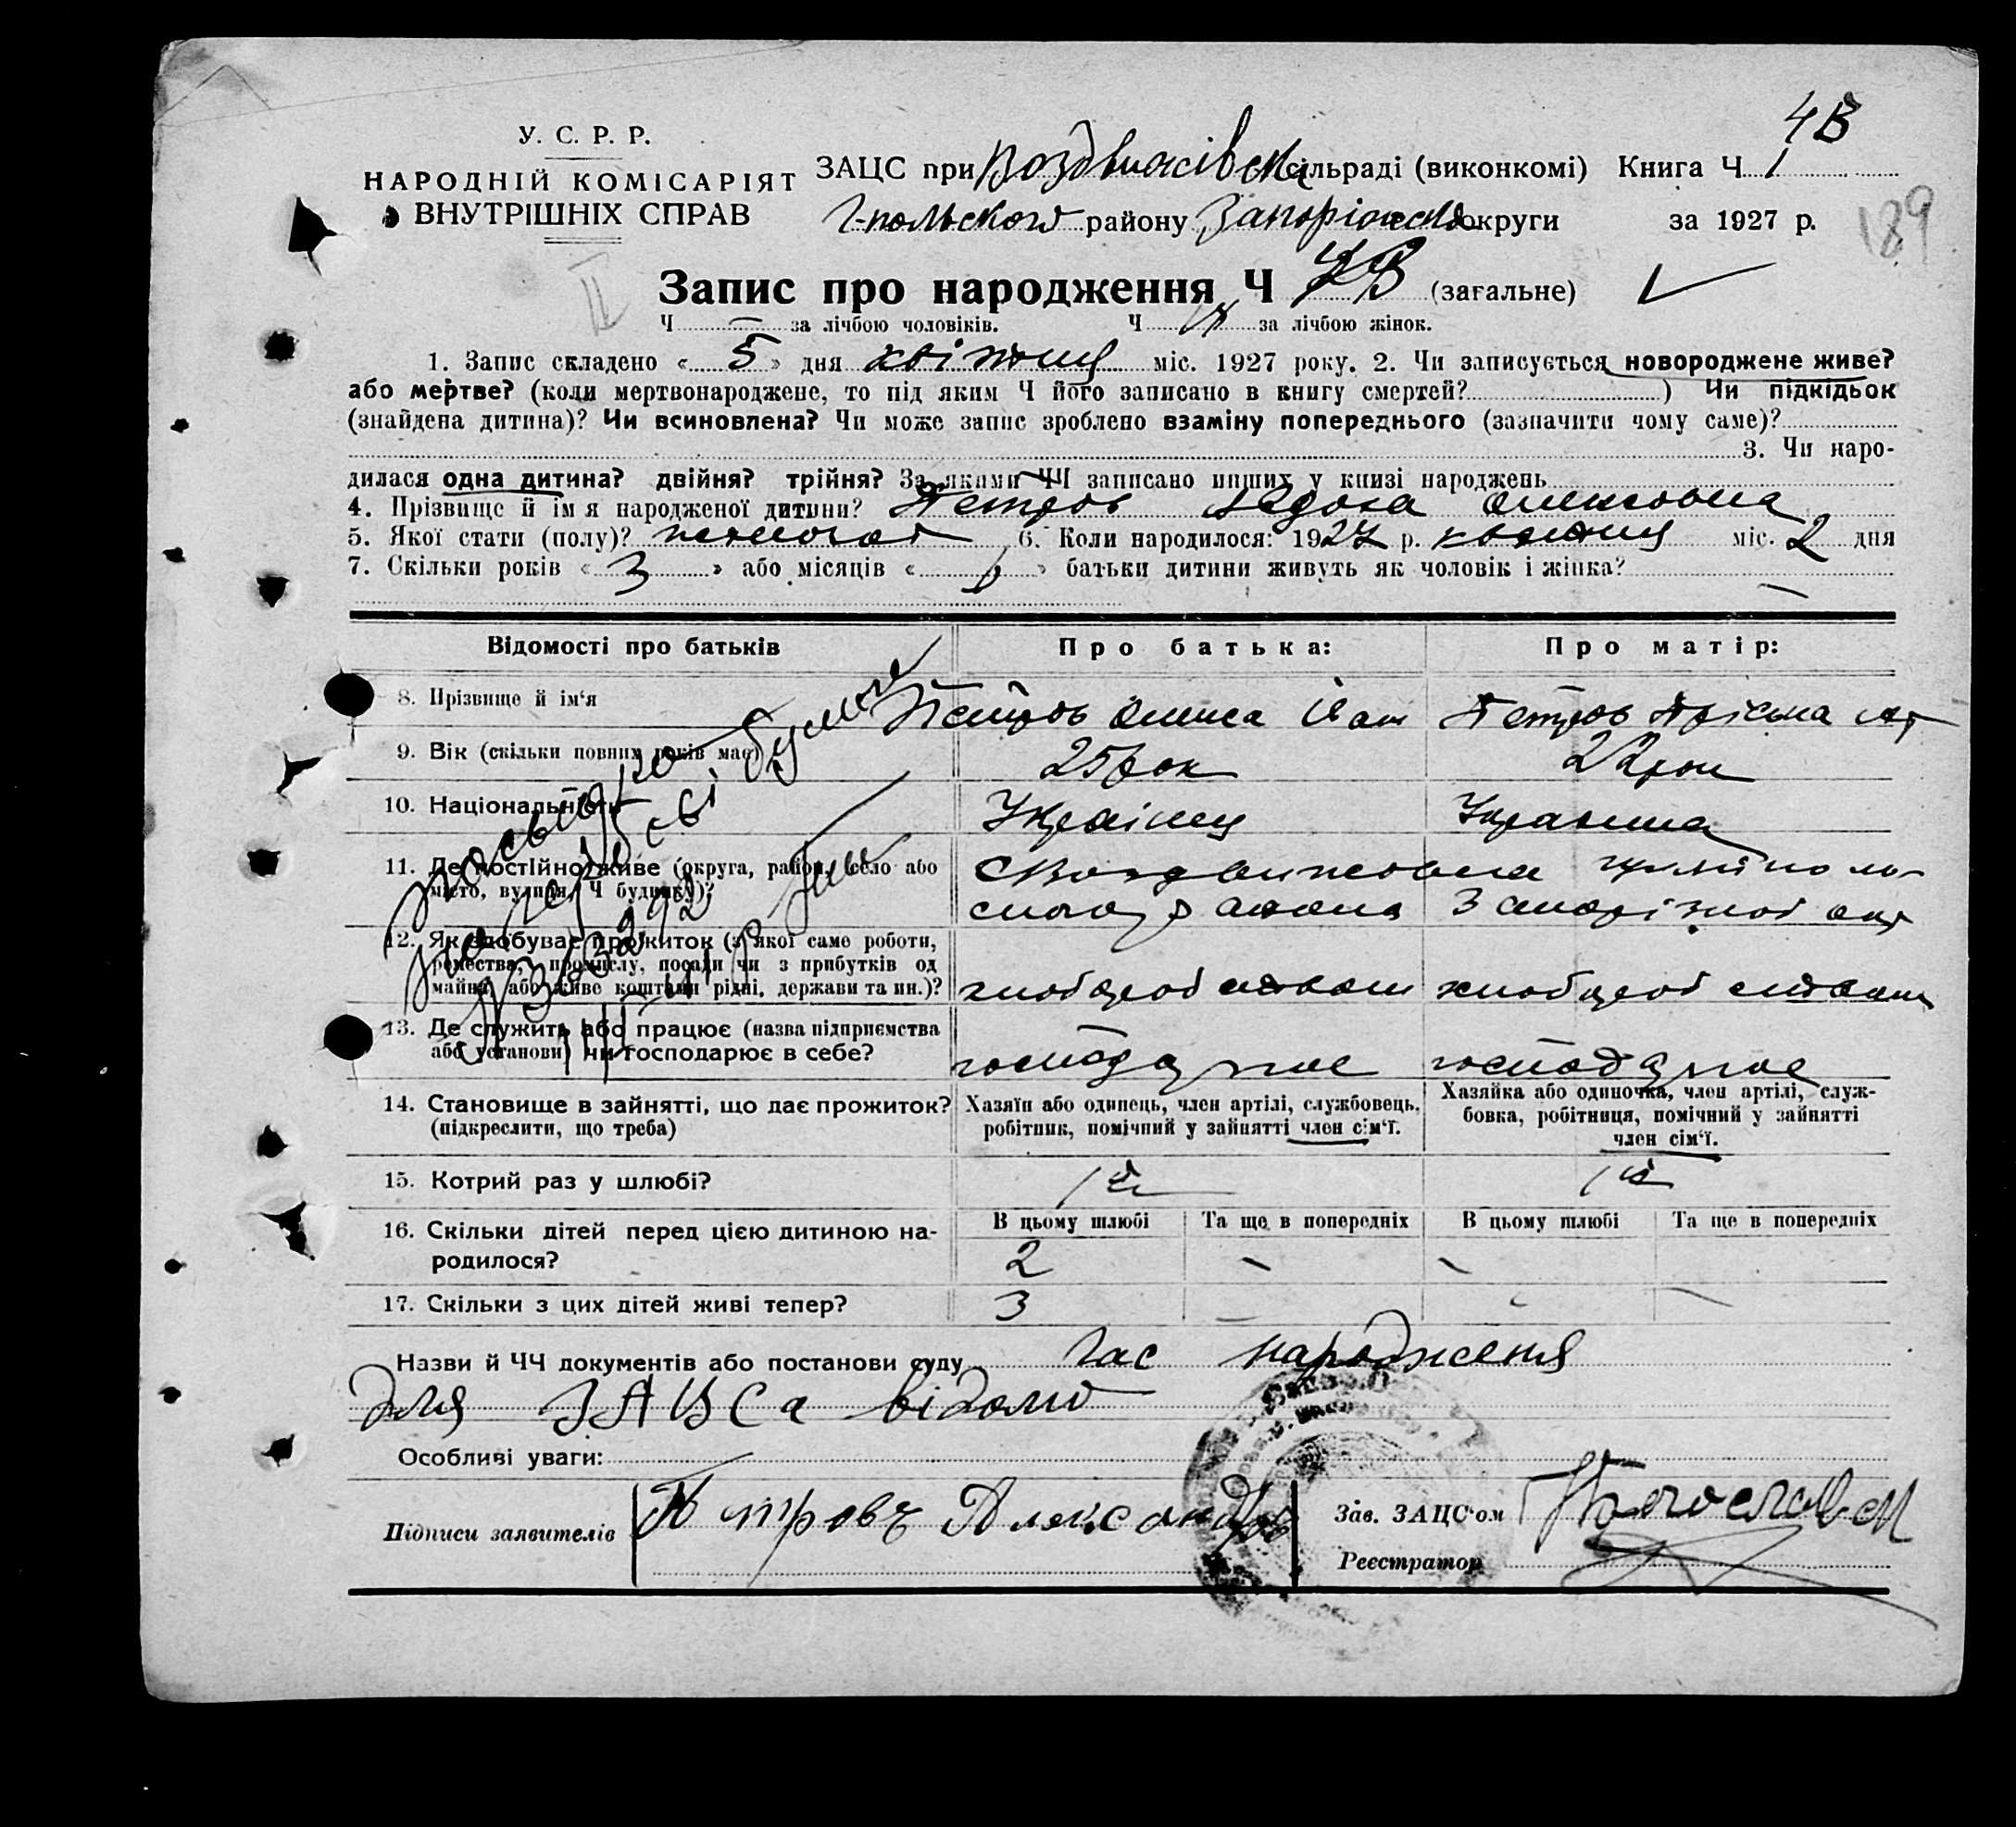 4В
У. С. Р. Р.
НАРОДНІЙ КОМІСАРІЯТ
ВНУТРІШНІХ СПРАВ
ЗАЦС при Воздвижівській сільраді (виконкомі) Книга Ч 1
Г-польского району Запоріжської округи за 1927 р.
189
II
Запис про народження Ч (загальне)
Ч — за лічбою чоловіків. Ч за лічбою жінок.
1. Запис складено « 5 » дня квітня міс. 1927 року. 2. Чи записується новороджене живе?
або мертве? (коли мертвонароджене, то під яким Ч його записано в книгу смертей? ) Чи підкідьок
(знайдена дитина)? Чи всиновлена? Чи може запис зроблено взаміну попереднього (зазначити чому саме)?
3. Чи наро-
дилася одна дитина? двійня? трійня? За якими ЧЧ записано инших у книзі народжень
4. Прізвище й ім'я народженої дитини? Петров
5. Якої стати (полу)? 6. Коли народилося: 1927 р. квітня міс. 2 дня
7. Скільки років « 3 » або місяців « » батьки дитини живуть як чоловік і жінка? —
Відомості про батьків Про батька: Про матір:
8. Прізвище й ім'я Петров Олекса Іван Петров Пріська
9. Вік (скільки повних років має) 25 рок 22 рок
10. Національність Українец Украинка
11. Де постійно живе (округа, район, село або
місто, вулиця, Ч будинку)?
12. Як здобуває прожиток (з якої саме роботи,
ремества, промислу, посади чи з прибутків од
майна, або живе коштами рідні, держави та ин.)? хлобороб хлобороб
13. Де служить або працює (назва підприємства
або установи) чи господарює в себе? господарює господарює
14. Становище в зайнятті, що дає прожиток?
(підкреслити, що треба)
Хазяїн або одинець, член артілі, службовець,
робітник, помічний у зайнятті член сім'ї.
Хазяйка або одиночка, член артілі, служ-
бовка, робітниця, помічний у зайнятті
член сім'ї.
15. Котрий раз у шлюбі? 1й 1й
16. Скільки дітей перед цією дитиною на-
родилося?
В цьому шлюбі Та ще в попередніх В цьому шлюбі Та ще в попередніх
2 — —
17. Скільки з цих дітей живі тепер? 3 — — —
Назви й ЧЧ документів або постанови суду час народження
для ЗАЦСа відомо
Особливі уваги:
Підписи заявителів Петровъ Александр
Зав. ЗАЦС'ом
Реєстратор